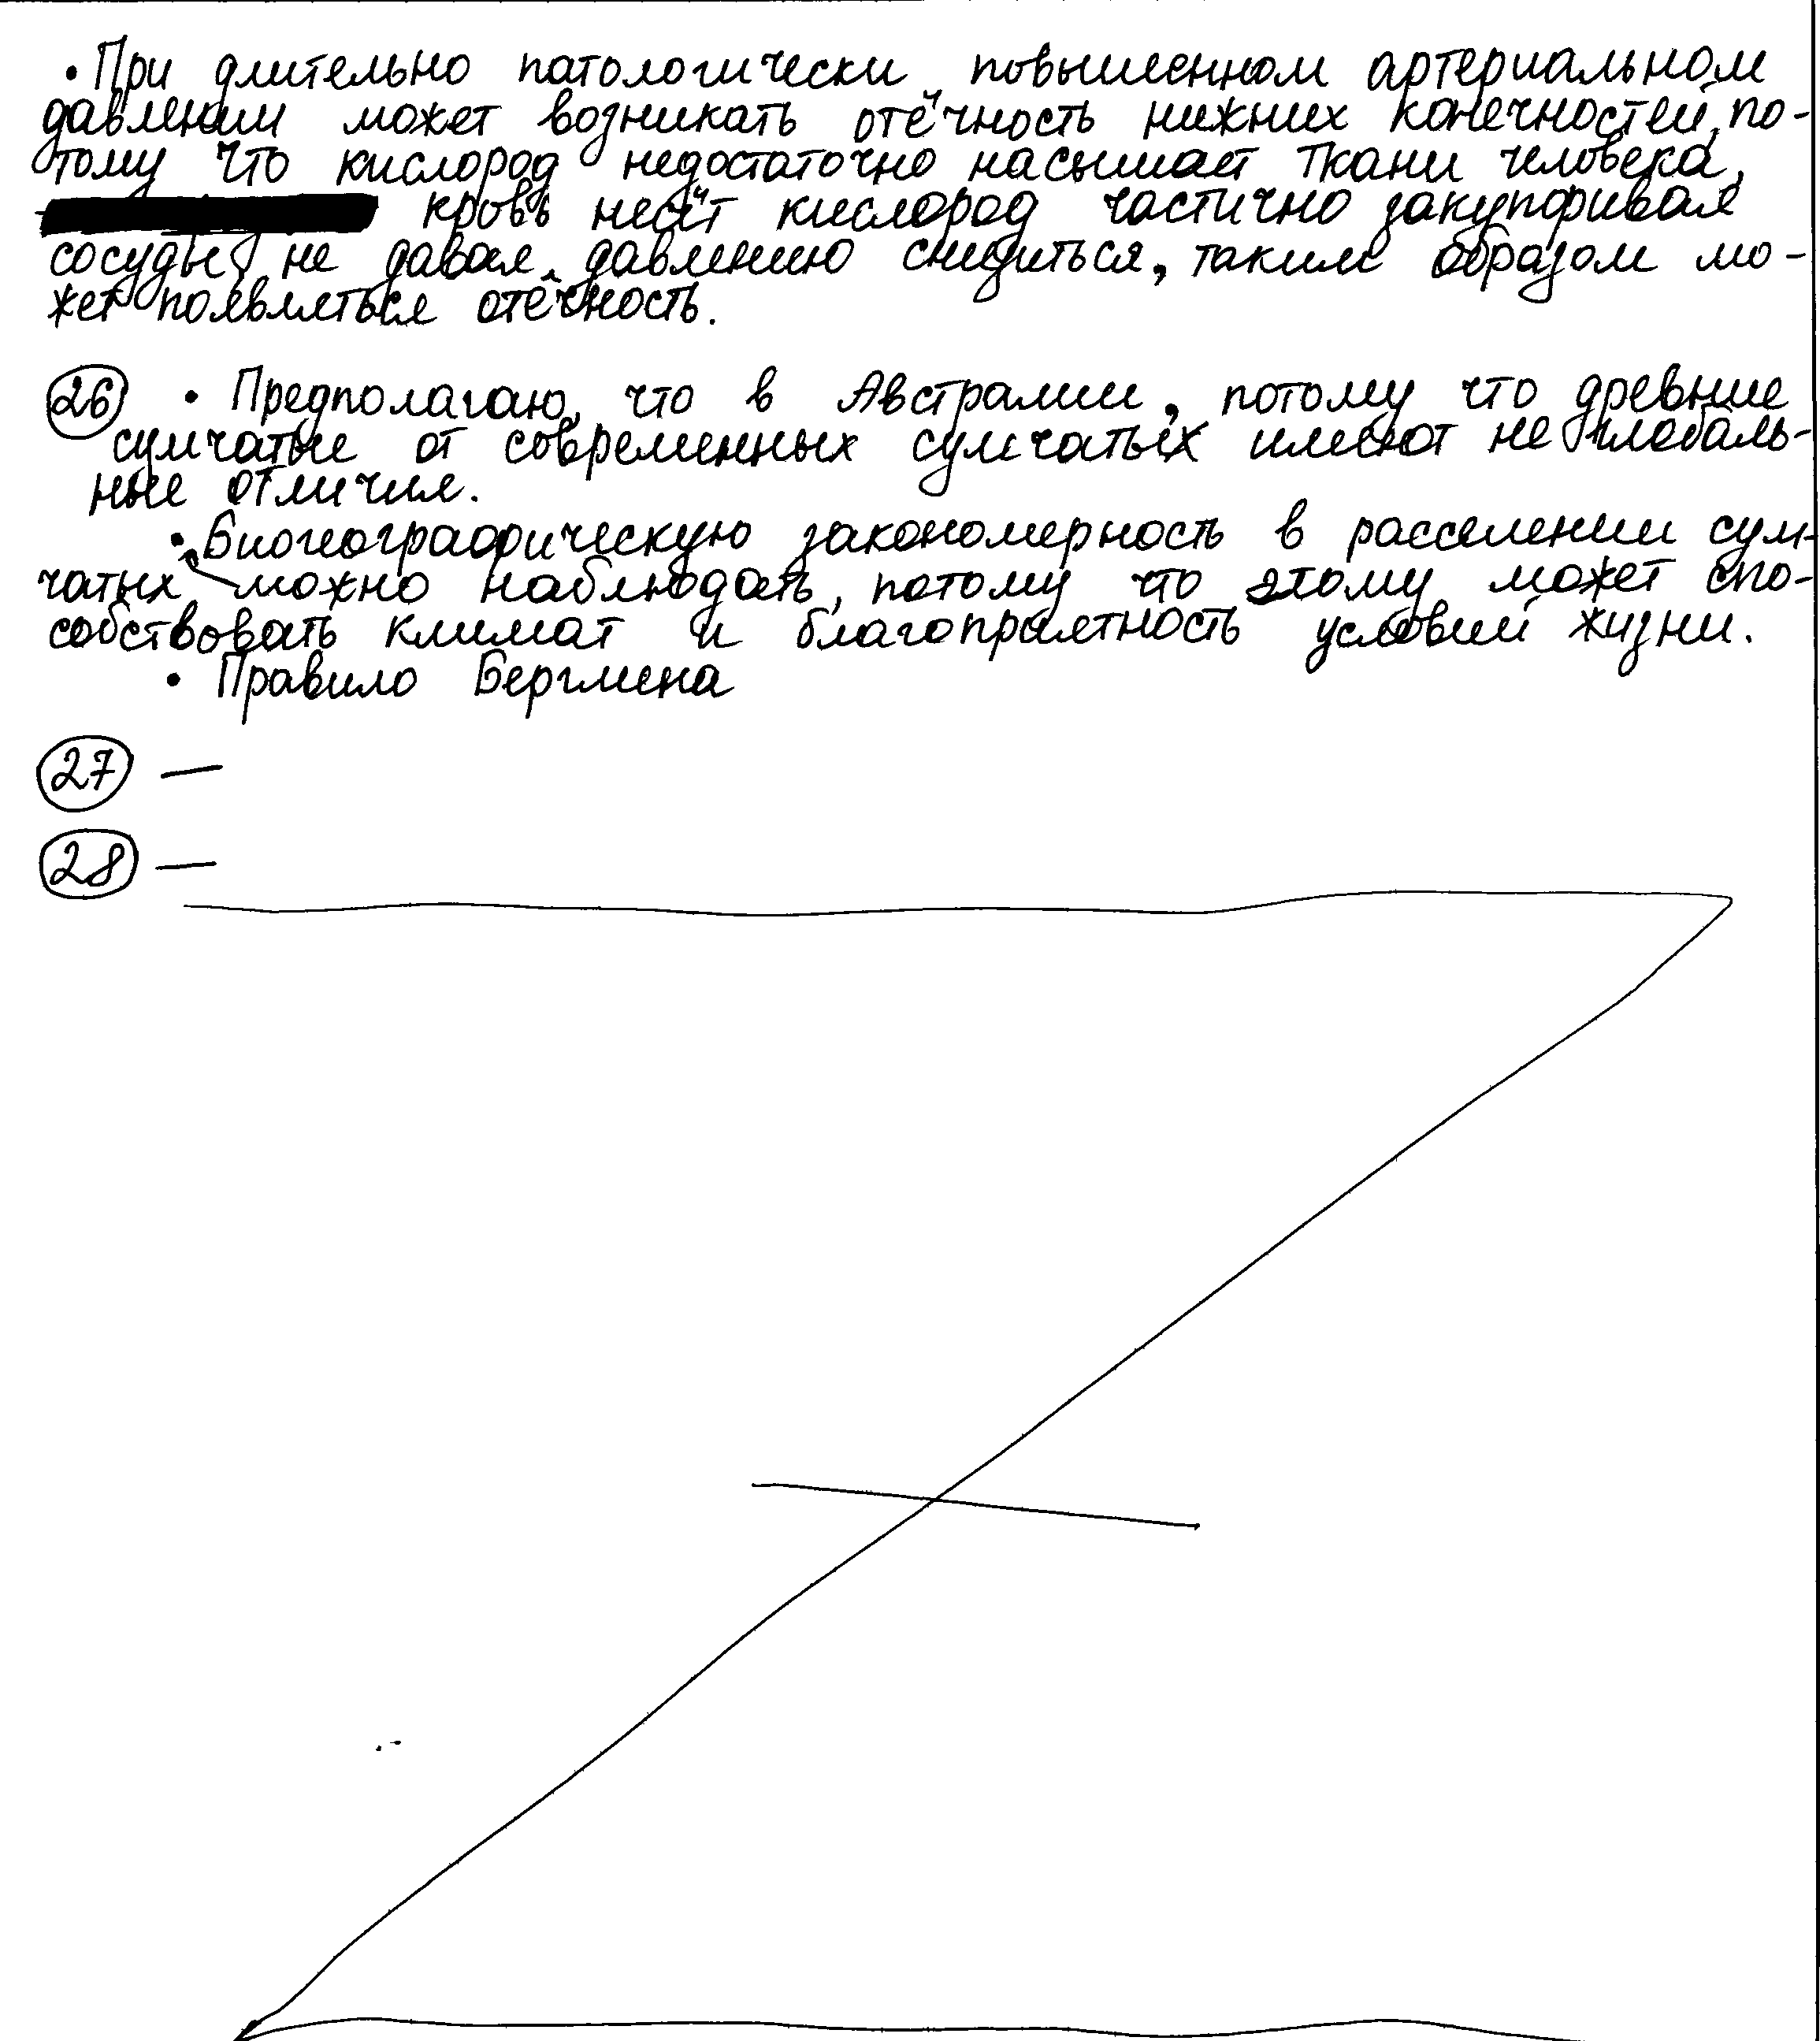 • При длительно патологически повышенном артериальном
давлении может возникать отёчность нижних конечностей, по-
тому что кислород недостаточно насыщает ткани человека,
кровь несёт кислород частично закупоривая
сосуды, не давая давлению снизиться, таким образом мо-
жет появляться отёчность.
26 • Предполагаю, что в Австралии, потому что древние
сумчатые от современных сумчатых имеют не глобаль-
ные отличия.
• Биогеографическую закономерность в расселении сум-
чатых можно наблюдать, потому что этому может спо-
собствовать климат и благоприятность условий жизни.
• Правило Бергмена
27 —
28 —